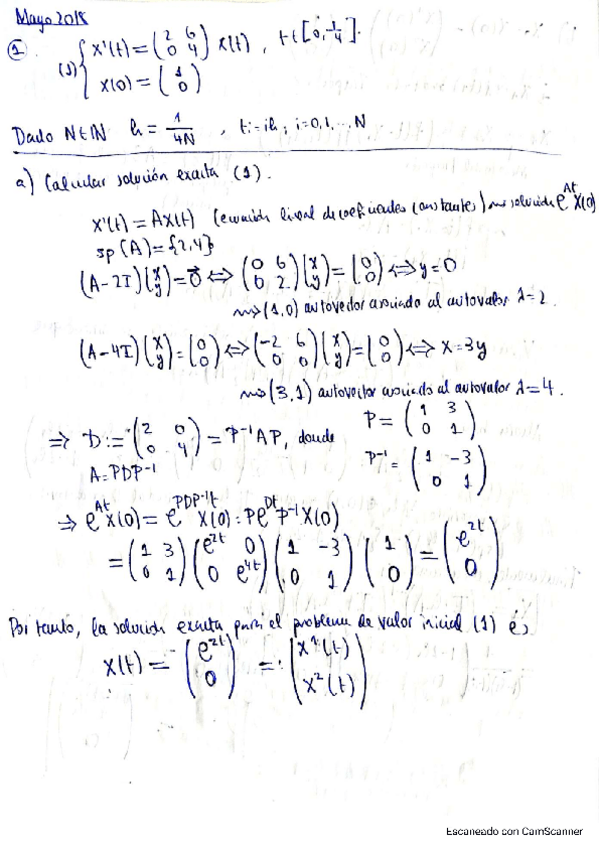 Mayo 2018
① (1) { x'(t) = (2 6 / 0 4) x(t) , t ∈ [0, 1/4].
x(0) = (1 / 0)
Dado N∈ℕ h = 1/4N , ti = ih, i = 0,1,...,N
a) Calcular solución exacta (1).
x'(t) = Ax(t) (ecuación lineal de coeficientes constantes) ⇝ solución e^{At} x(0)
sp(A) = {2,4}
(A-2I)(x / y) = 0⃗ ⇔ (0 6 / 0 2)(x / y) = (0 / 0) ⇔ y = 0
⇝ (1,0) autovector asociado al autovalor λ=2.
(A-4I)(x / y) = (0 / 0) ⇔ (-2 6 / 0 0)(x / y) = (0 / 0) ⇔ x = 3y
⇝ (3,1) autovector asociado al autovalor λ=4.
⇒ D := (2 0 / 0 4) = P⁻¹AP, donde P = (1 3 / 0 1)
A = PDP⁻¹ P⁻¹ = (1 -3 / 0 1)
⇒ e^{At} x(0) = e^{PDP⁻¹t} x(0) = P e^{Dt} P⁻¹ x(0)
= (1 3 / 0 1)(e^{2t} 0 / 0 e^{4t})(1 -3 / 0 1)(1 / 0) = (e^{2t} / 0)
Por tanto, la solución exacta para el problema de valor inicial (1) es
x(t) = (e^{2t} / 0) =: (x¹(t) / x²(t))
Escaneado con CamScanner